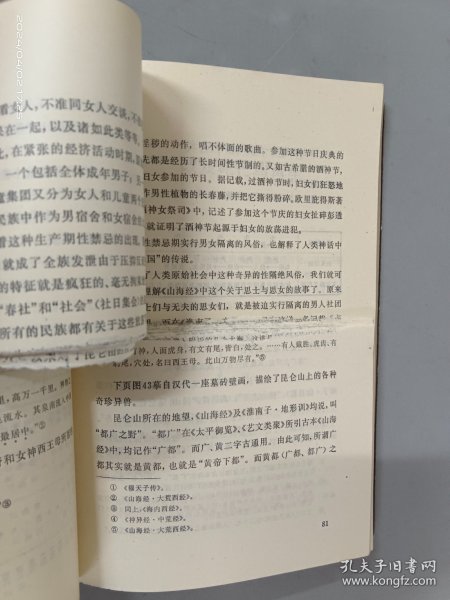 着女人，不准同女人交谈，不
在一起，以及诸如此类等
在紧张的经济活动时期
一个包括全体成年男子
集团又分为女人和儿童两
民族中作为男宿舍和女宿舍
着这种生产期性禁忌的出现
就成了全族发泄由于压抑
的特征就是疯狂的、毫无
“春社”和“社会”《社日集会》
所有的民族都有关于这些
高万一千里
流水。其泉南流入
最居中。”②
和女神西王母所
淫秽的动作，唱不体面的歌曲。参加这种节日庆典的
先都是经历了长时间性节制的。又如古希腊的酒神节，
妇女参加的节日。据记载，过酒神节时，妇女们狂怒地
作男性植物的长春藤，并把它撕得粉碎。欧里庇得斯著
酒神女祭司》中，记述了参加这个节庆的妇女扯碎彭透
就证明了酒神节起源于妇女的放荡进犯。
性禁忌期实行男女隔离的风俗，也解释了人类神话中
国”的传说。
了人类原始社会中这种奇异的性隔绝风俗，我们就可
理解《山海经》中这个关于思士与思女的故事了。原来
士们与无夫的思女们，就是被迫实行隔离的男人社团
神，人面虎身，有文有尾，皆白，处之。……有人戴胜，虎齿、有
豹尾，穴处，名曰西王母。此山万物尽有。”⑤
下页图43摹自汉代一座墓砖壁画，描绘了昆仑山上的各种
奇珍异兽。
昆仑山所在的地望，《山海经》及《淮南子·地形训》均说，叫
“都广之野”。“都广”在《太平御览》、《艺文类聚》所引古本《山海
经》中，均记作“广都”。而广、黄二字古通用。由此可知，所谓广
都其实就是黄都，也就是“黄帝下都”。而黄都（广都、都广）之
① 《穆天子传》。
② 《山海经·大荒西经》。
③ 同上，《海内西经》。
④ 《神异经·中荒经》。
⑤ 《山海经·大荒西经》。
81
2024/04/20
孔夫子旧书网
www.kongfz.com